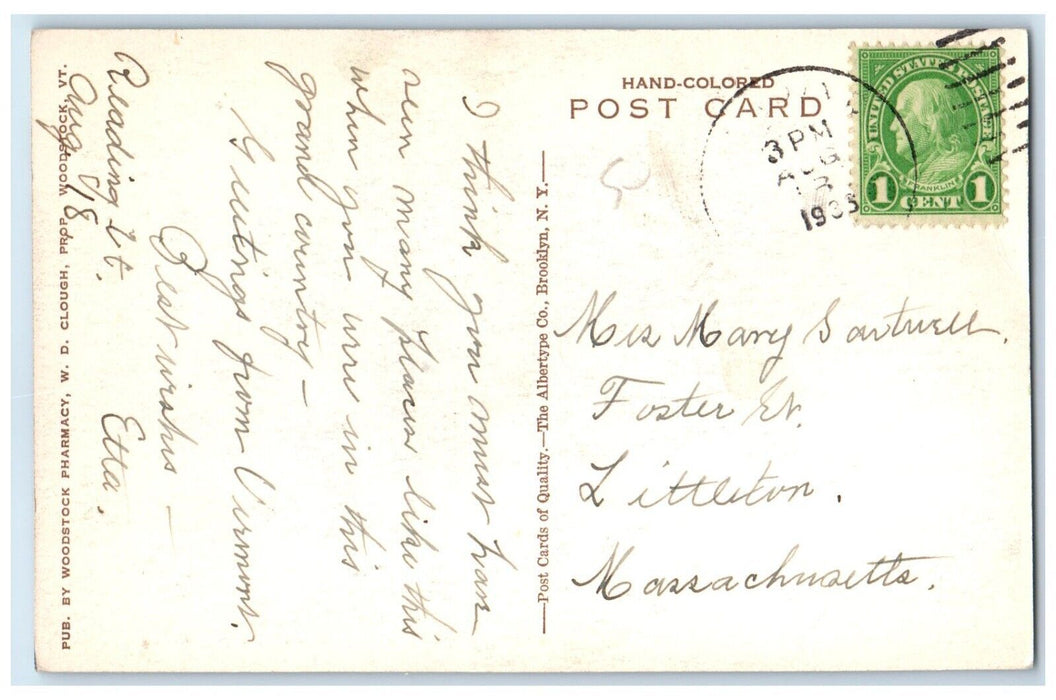 PUB. BY WOODSTOCK PHARMACY, W. D. CLOUGH, PROP. WOODSTOCK, VT.
Reading Vt.
Aug. 18,
I think you must have
seen many places like this
when you were in this
grand country —
Greetings from Vermont.
Best wishes —
Etta.
—Post Cards of Quality.—The Albertype Co., Brooklyn, N. Y.—
HAND-COLORED
POST CARD
3 PM
AUG
18
UNITED STATES POSTAGE
FRANKLIN
1 CENT 1
Miss Mary Sartwell.
Foster St.
Littleton.
Massachusetts.